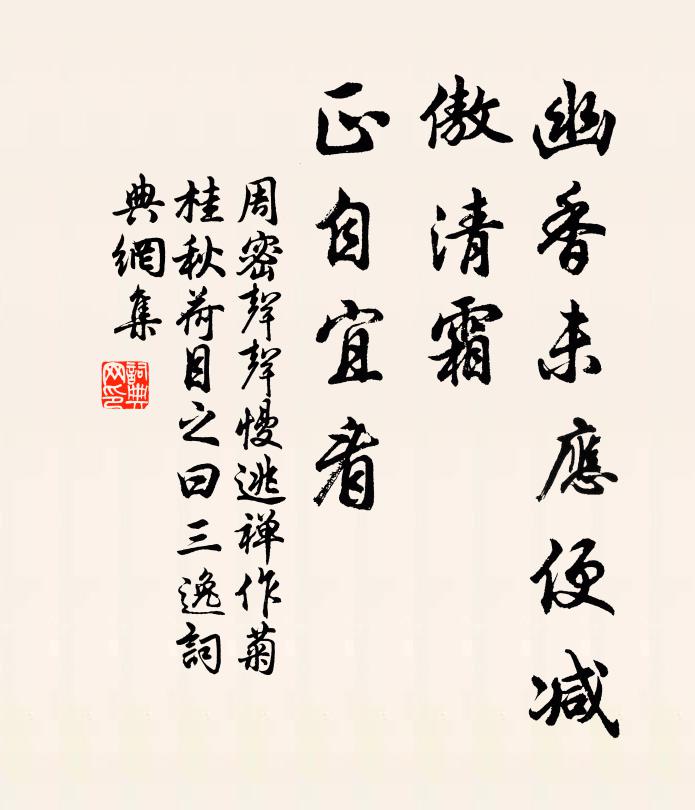 幽香未應便減
傲清霜
正自宜看
周密聲聲慢逃禅作菊
桂秋荷目之曰三逸詞
典網集
詞典网印